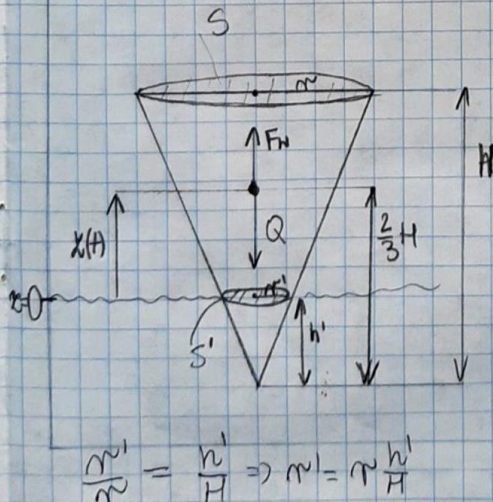 S
r
F_N
H
x(t)
Q
2/3 H
x=0
r'
h'
S'
r'/r = h'/H => r' = r h'/H